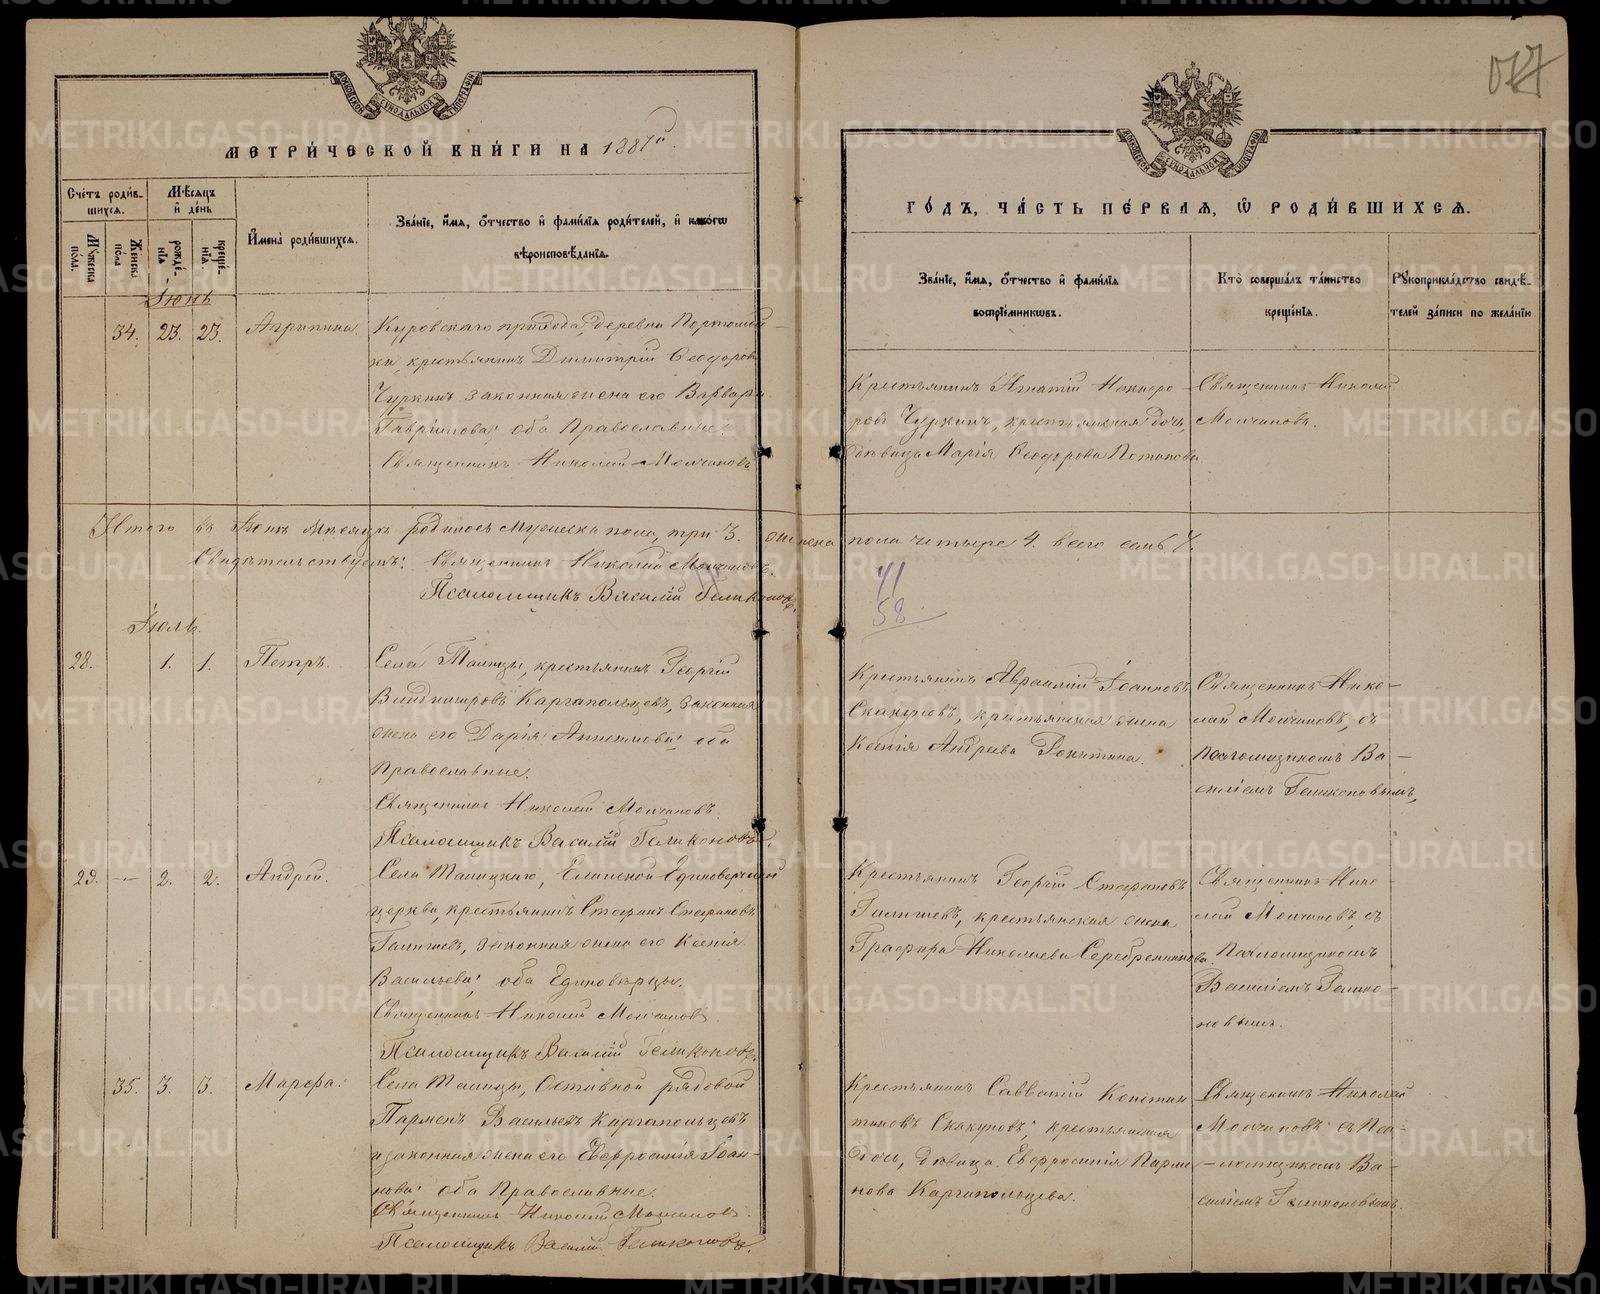 МЕТРИ́ЧЕСКОЙ КНИ́ГИ НА 1887й
Счетъ роди́в-
шихся.
Мѣсяцъ
и҆ де́нь
Мꙋжеска
по́ла.
Же́нска
по́ла
рожде́-
нїѧ
креще́-
нїѧ.
И҆мена̀ роди́вшихсѧ.
Зва́нїе, и҆́мѧ, ѻ҆́тчество и҆ фами́лїѧ роди́телей, и҆ како́гѡ
вѣроисповѣ́данїѧ.
Іюнь
34. 23. 23. Агрипина.
Куровскаго прихода, деревни
ки, крестьянинъ Димитрій Ѳеодоровъ
Чуркинъ законная жена его Варвара
Гаврилова, оба Православные.
Священникъ Николай Молчановъ
Итого въ Іюнѣ мѣсяцѣ родилось мужеска пола, три 3. женска
Свидѣтельствуемъ: Священникъ Николай Молчановъ.
Псаломщикъ Василій Геликоновъ.
Іюль.
28. 1. 1. Петръ.
Села Талицы, крестьянинъ Георгій
Каргапольцевъ, законная
жена его Дарія оба
Православные.
Священникъ Николай Молчановъ.
Псаломщикъ Василій Геликоновъ.
29. — 2. 2. Андрей.
Села Талицкаго, Единоверческой
церкви, крестьянинъ Стефанъ Стефановъ
Галишевъ, законная жена его Ксенія
Васильева, оба Единовѣрцы.
Священникъ Николай Молчановъ
Псаломщикъ Василій Геликоновъ.
35. 3. 5. Марфа.
Села Талицы, Отставной рядовой
Парменъ Васильевъ Каргапольцевъ
и законная жена его Евфросинія Іоан-
нова, оба Православные.
Священникъ Николай Молчановъ.
Псаломщикъ Василій Геликоновъ.
ГО́ДЪ, ЧА́СТЬ ПЕ́РВАЯ, Ѡ҆ РОДИ́ВШИХСЯ.
Зва́нїе, и҆́мѧ, ѻ҆́тчество и҆ фами́лїѧ
воспрїе́мникѡвъ.
Кто̀ соверша́лъ та́инство
креще́нїѧ.
Рꙋкоприкла́дство свидѣ́-
телей за́писи по жела́нїю
Крестьянинъ Игнатій Никифо-
ровъ Чуркинъ, крестьянская дочь,
дѣвица Марія Ѳеодорова Потапова
Священникъ Николай
Молчановъ.
пола четыре 4. всего семь 7.
41
58
Крестьянинъ Авраамій Іоанновъ
Скакуновъ, крестьянская жена
Ксенія Андреева
Священникъ Нико-
лай Молчановъ, съ
псаломщикомъ Ва-
силіемъ Геликоновымъ,
Крестьянинъ Георгій Стефановъ
Галишевъ, крестьянская жена
Глафира Николаева Серебренникова.
Священникъ Нико-
лай Молчановъ, съ
Псаломщикомъ
Василіемъ Гелико-
новымъ.
Крестьянинъ Савватій Констан
тиновъ Скакуновъ, крестьянская
дочь, дѣвица Евфросинія Парме-
нова Каргапольцева.
Священникъ Николай
Молчановъ съ Пса-
ломщикомъ Ва-
силіемъ Геликоновымъ.
METRIKI.GASO-URAL.RU